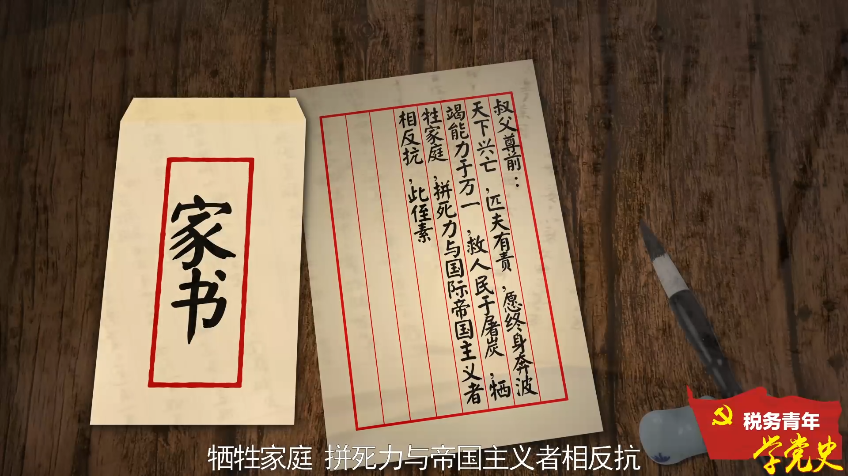 家书
叔父尊前：
天下兴亡，匹夫有责，愿终身奔波
竭能力于万一，救人民于屠炭，牺
牲家庭，拼死力与国际帝国主义者
相反抗，此侄素
牺牲家庭 拼死力与帝国主义者相反抗
税务青年
学党史